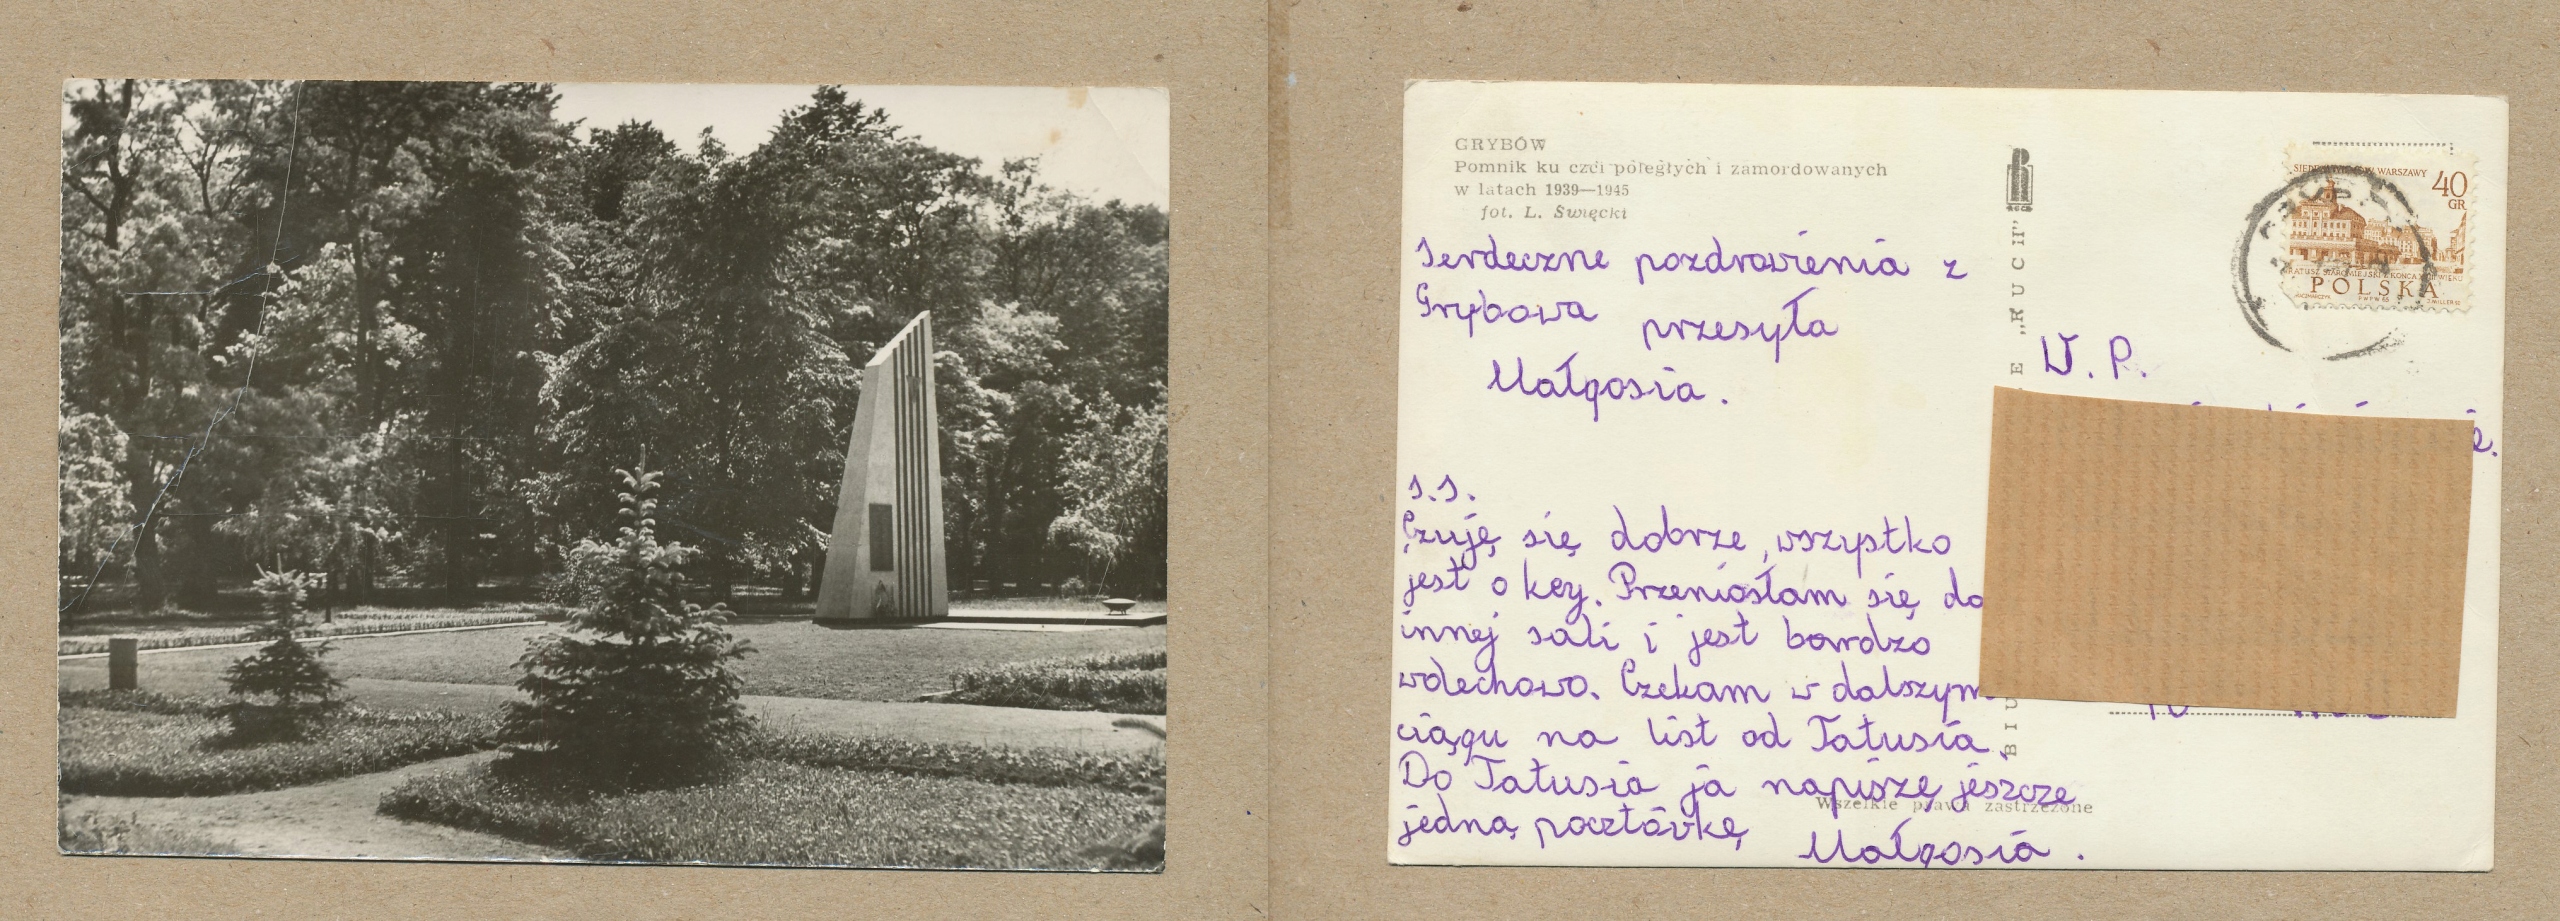 GRYBÓW
Pomnik ku czci poległych i zamordowanych
w latach 1939—1945
fot. L. Święcki
Serdeczne pozdrowienia z
Grybowa przesyła
Małgosia.
S.S.
Czuję się dobrze, wszystko
jest o key. Przeniosłam się do
innej sali i jest bardzo
wdechowo. Czekam w dalszym
ciągu na list od Tatusia.
Do Tatusia ja napiszę jeszcze
jedną pocztówkę
Małgosia.
Wszelkie prawa zastrzeżone
BIU E „RUCH”
SIEDEM WIEKÓW WARSZAWY
40
GR
RATUSZ STAROMIEJSKI Z KOŃCA XVIII WIEKU
POLSKA
W.P.